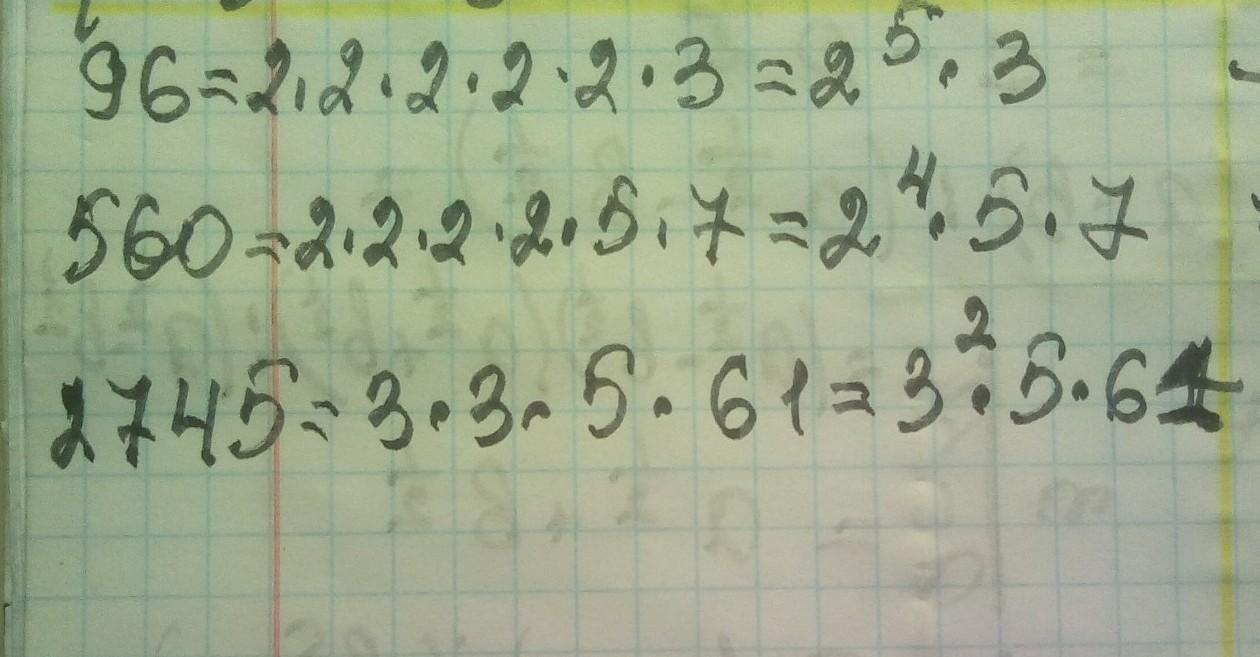 96=2·2·2·2·2·3=2⁵·3
560=2·2·2·2·5·7=2⁴·5·7
2745=3·3·5·61=3²·5·61